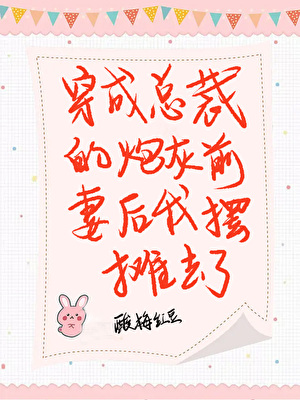 穿成总裁
的炮灰前
妻后我摆
摊去了
酸梅红豆